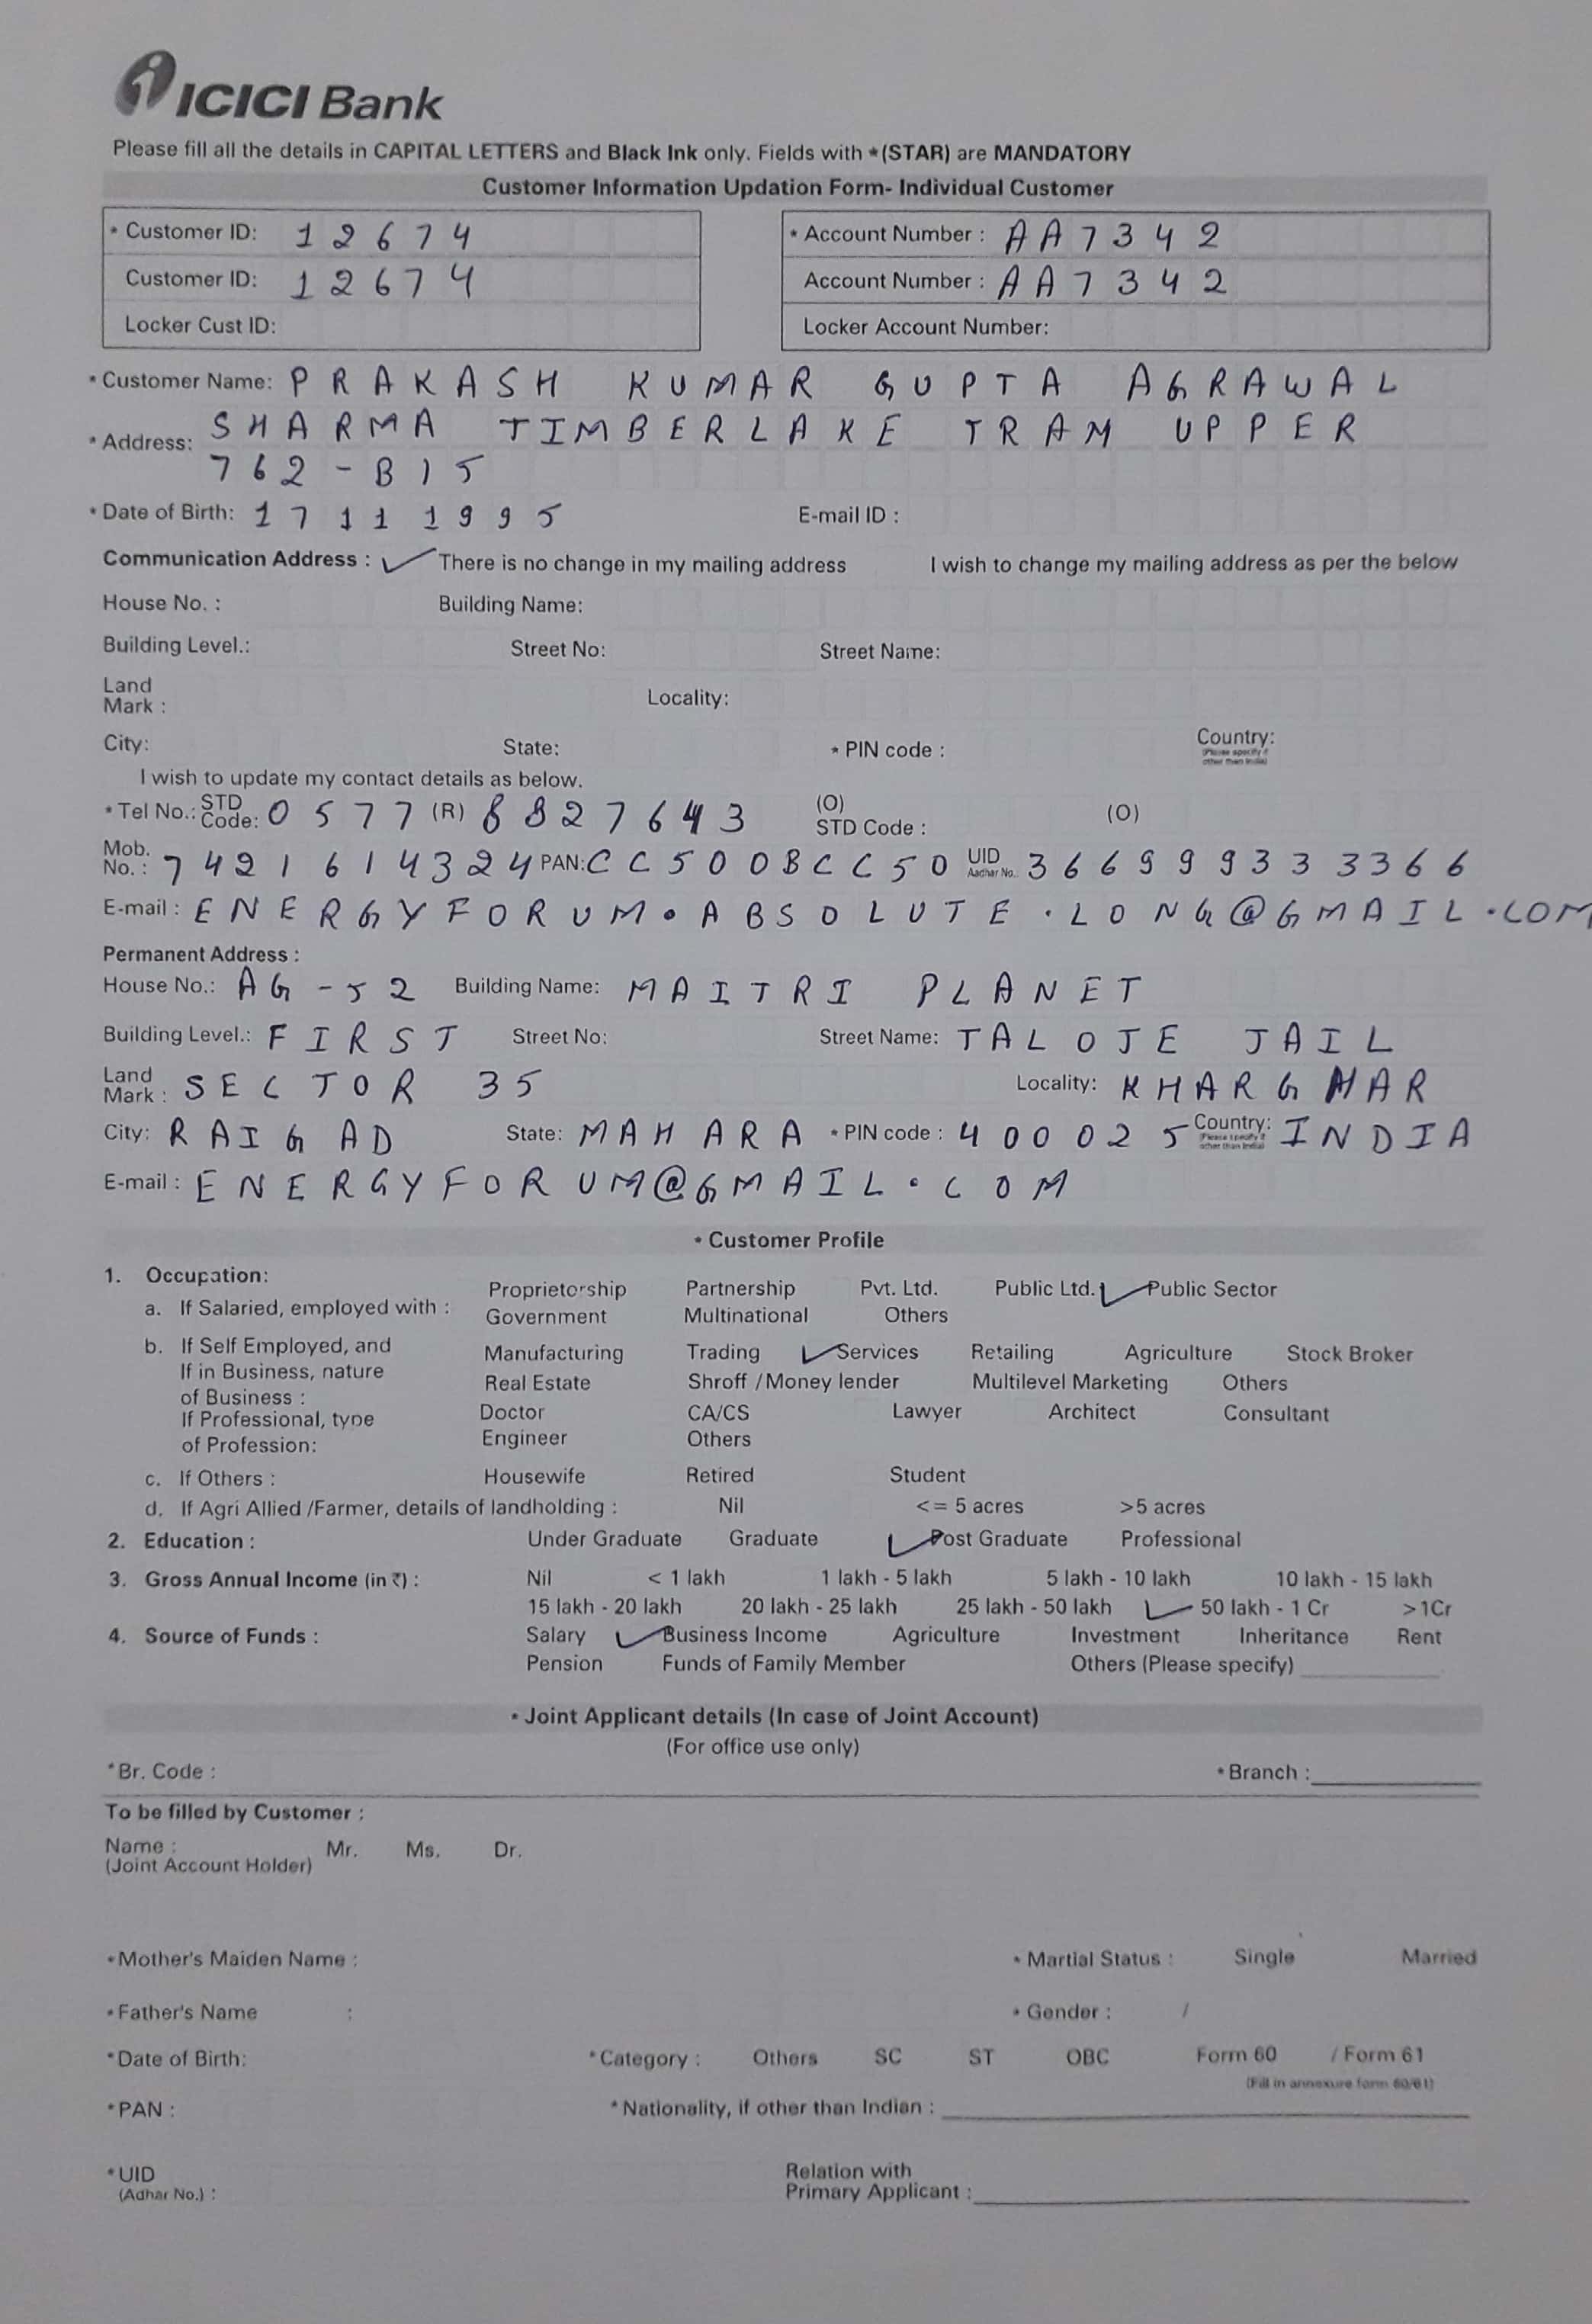 ICICI Bank
Please fill all the details in CAPITAL LETTERS and Black Ink only. Fields with *(STAR) are MANDATORY
Customer Information Updation Form- Individual Customer
* Customer ID: 12674 * Account Number : AA7342
Customer ID: 12674 Account Number : AA7342
Locker Cust ID: Locker Account Number:
* Customer Name: PRAKASH KUMAR GUPTA AGRAWAL
SHARMA TIMBERLAKE TRAM UPPER
* Address:
762-B15
* Date of Birth: 17 11 1995 E-mail ID :
Communication Address : ✓ There is no change in my mailing address I wish to change my mailing address as per the below
House No. : Building Name:
Building Level.: Street No: Street Name:
Land Mark : Locality:
City: State: * PIN code : Country: (Please specify if other than India)
I wish to update my contact details as below.
* Tel No.: STD Code: 0577 (R) 8827643 (O) STD Code : (O)
Mob. No. : 7421614324 PAN: CC500BCC50 UID Aadhar No. 366999333366
E-mail : ENERGYFORUM.ABSOLUTE.LONG@GMAIL.COM
Permanent Address :
House No.: AG-52 Building Name: MAITRI PLANET
Building Level.: FIRST Street No: Street Name: TALOJE JAIL
Land Mark : SECTOR 35 Locality: KHARGHAR
City: RAIGAD State: MAHARA * PIN code : 400025 Country: (Please specify if other than India) INDIA
E-mail : ENERGYFORUM@GMAIL.COM
* Customer Profile
1. Occupation:
a. If Salaried, employed with : Proprietorship Partnership Pvt. Ltd. Public Ltd. ✓ Public Sector
Government Multinational Others
b. If Self Employed, and If in Business, nature of Business : Manufacturing Trading ✓ Services Retailing Agriculture Stock Broker
Real Estate Shroff /Money lender Multilevel Marketing Others
If Professional, type of Profession: Doctor CA/CS Lawyer Architect Consultant
Engineer Others
c. If Others : Housewife Retired Student
d. If Agri Allied /Farmer, details of landholding : Nil <= 5 acres >5 acres
2. Education : Under Graduate Graduate ✓ Post Graduate Professional
3. Gross Annual Income (in ₹) : Nil < 1 lakh 1 lakh - 5 lakh 5 lakh - 10 lakh 10 lakh - 15 lakh
15 lakh - 20 lakh 20 lakh - 25 lakh 25 lakh - 50 lakh ✓ 50 lakh - 1 Cr >1Cr
4. Source of Funds : Salary ✓ Business Income Agriculture Investment Inheritance Rent
Pension Funds of Family Member Others (Please specify)
* Joint Applicant details (In case of Joint Account)
(For office use only)
*Br. Code : * Branch :
To be filled by Customer :
Name : Mr. Ms. Dr.
(Joint Account Holder)
*Mother's Maiden Name : * Martial Status : Single Married
*Father's Name : * Gender : /
*Date of Birth: *Category : Others SC ST OBC Form 60 / Form 61
(Fill in annexure form 60/61)
*PAN : *Nationality, if other than Indian :
*UID Relation with
(Adhar No.) : Primary Applicant :